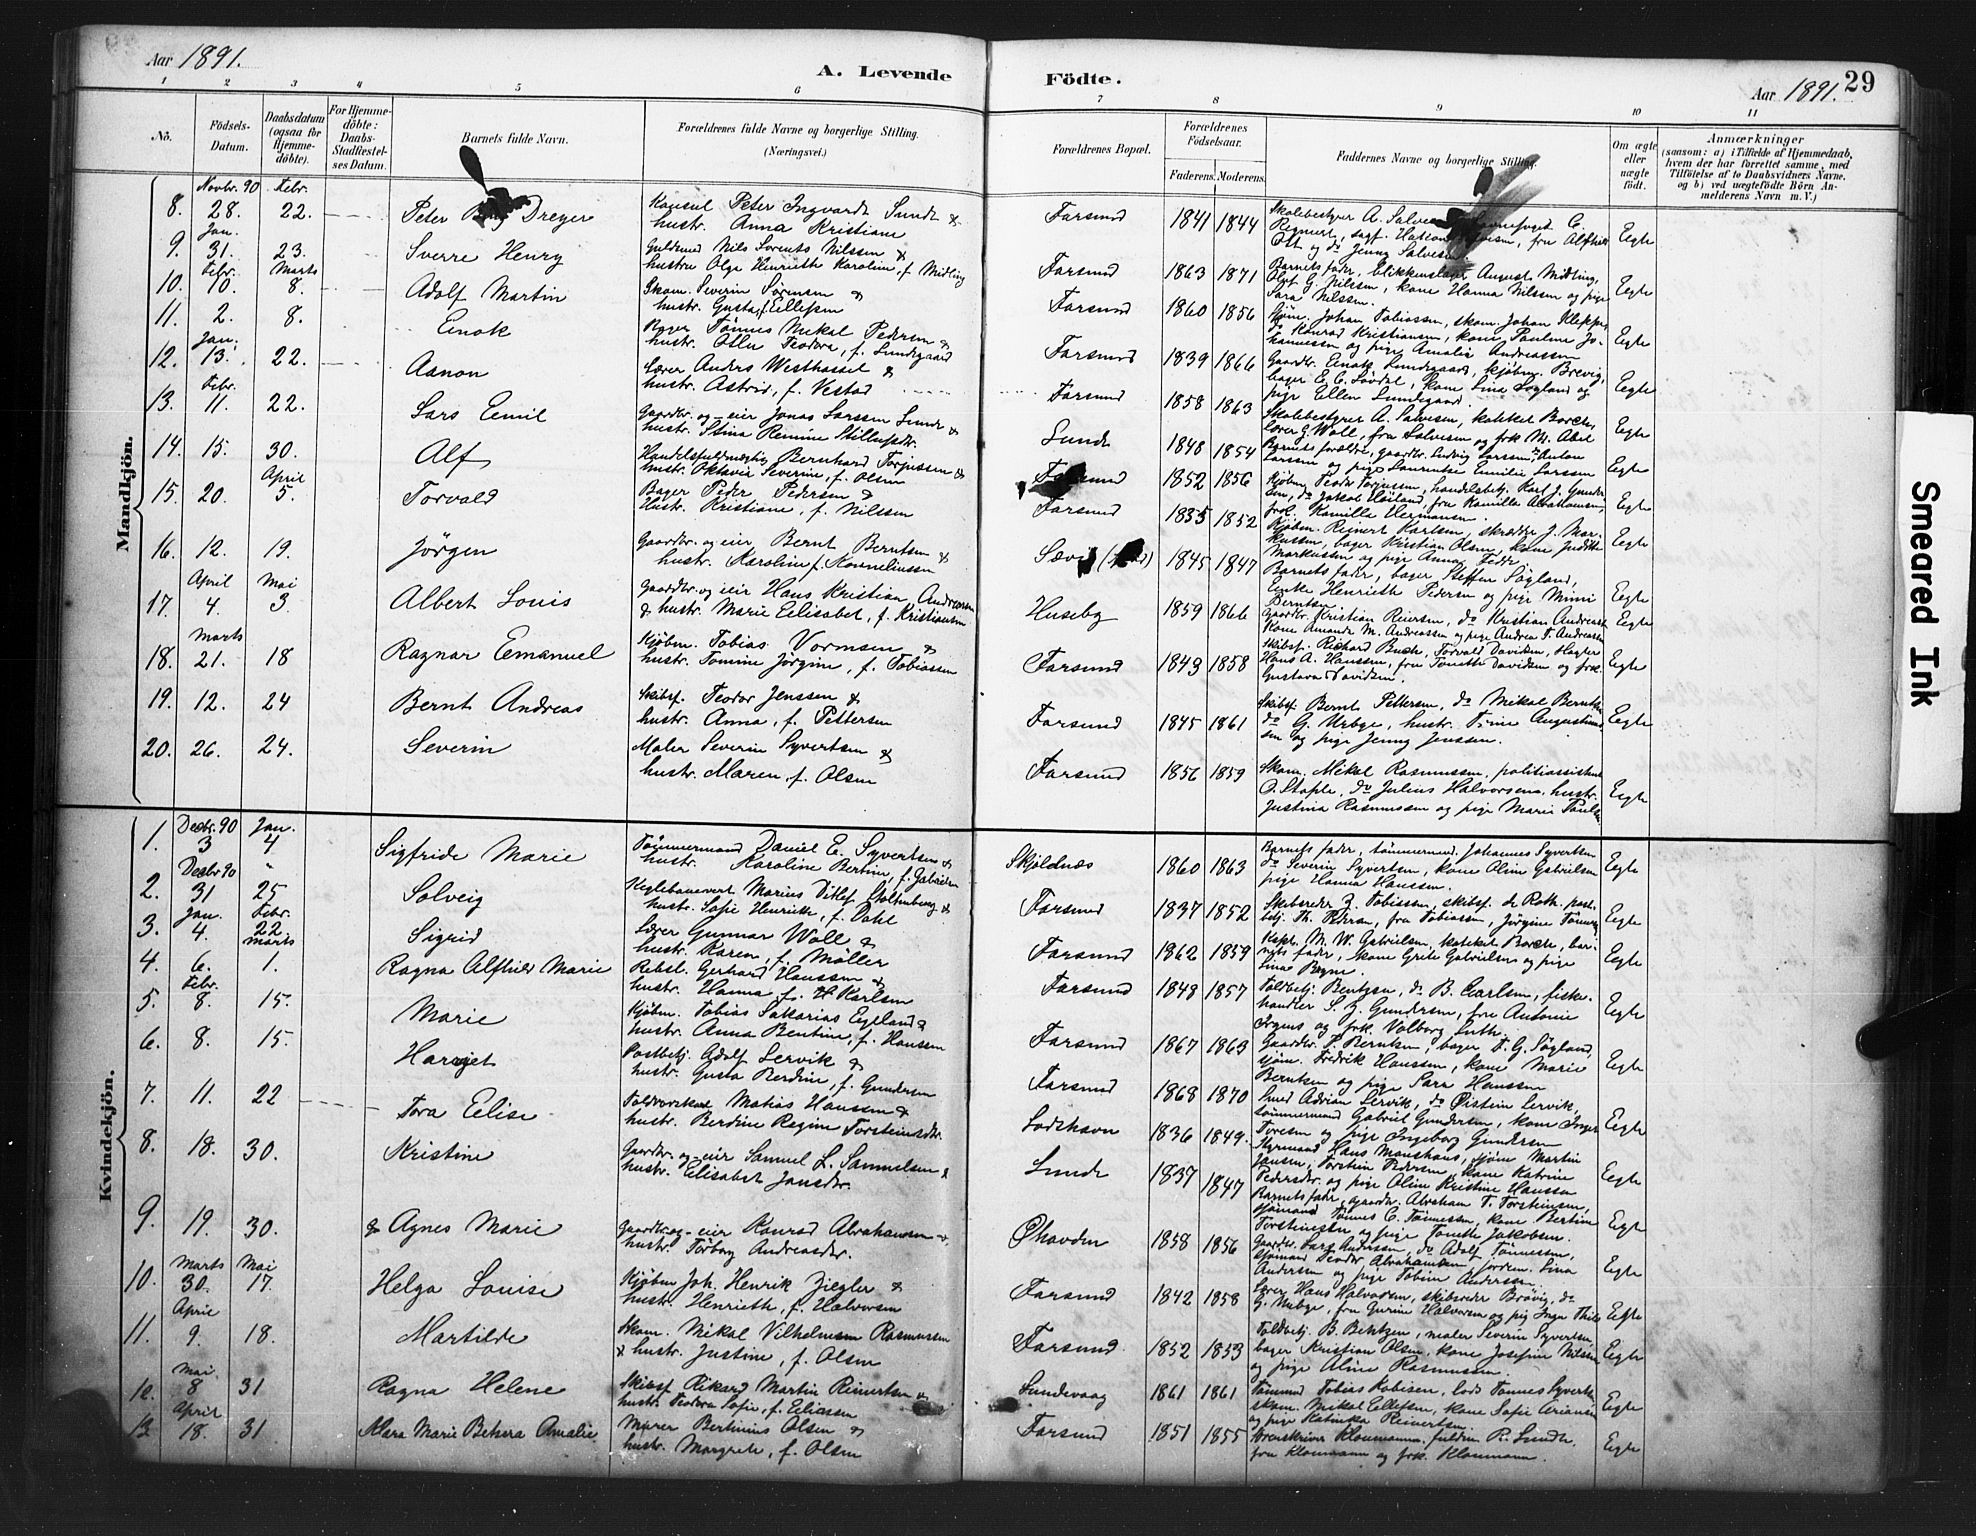 Aar 1891.
A. Levende
Födte.
Aar 1891.
29
1 2 3 4 5 6 7 8 9 10 11
No.
Födsels-Datum.
Daabsdatum (ogsaa for Hjemme-döbte).
For Hjemme-döbte: Daabs-Stadfæstel-ses Datum.
Barnets fulde Navn.
Forældrenes fulde Navne og borgerlige Stilling.
(Næringsvei.)
Forældrenes Bopæl.
Forældrenes Födselsaar.
Faderens. Moderens.
Faddernes Navne og borgerlige Stilling.
Om ægte eller uægte födt.
Anmærkninger
(saasom: a) i Tilfælde af Hjemmedaab,
hvem der har forrettet samme, med
Tilföielse af to Daabsvidners Navne.
og b) ved uægtefödte Börn An-
melderens Navn m. V.)
Mandkjön.
8. Novbr. 90 28. Febr. 22. Peter Dreyer Konsul Peter Ingvardt Sunde & hustr. Anna Kristiane Farsund 1841 1844 Eegte
9. Jan. 31. 23. Sverre Henry Guldsmed Nils Lorents Nilssen & hustru Olga Henriette Karoline, f. Midling Farsund 1863 1871 Barnets fader, blikkenslager August Midling, Olaf G. Nilssen, kone Hanna Nilssen og pige Sara Nilssen. Eegte
10. Febr. 10. Marts 8. Adolf Martin Skom. Severin Sörensen & hustr. Gusta, f. Ellefsen Farsund 1860 1856 Sjöm. Johan Tobiassen, skom. Johan Kleppe, do Konrad Kristiansen, kone Pauline Johannessen og pige Amalie Andreassen Eegte
11. 2. 8. Enok Tönnes Mekal Pedersen & hustr. Teodora, f. Lundegaard Farsund 1839 1866 Gaardbr. Enok Lundegaard, kjöbm. Brevig, bager E. C. Lövdal, kone Lina Sögland og pige Ellen Lundegaard. Eegte
12. Jan. 13. 22. Aanon Lærer Anders Westhassel & hustr. Astrid, f. Vestad Farsund 1858 1863 Skolebestyrer A. Salvesen, katekét Borch, Lærer G. Woll, fru Salvesen og frk. M. Abel Eegte
13. Febr. 11. 22. Lars Eemil Gaardbr. og eier Jonas Larssen Lunde & hustr. Stina Remine Lunde 1848 1854 Barnets forældre, gaardbr. Ludvig Larssen, Anton Larssen og pige Laurentse Emilie Larssen Eegte
14. 15. 30. Alf Bernhard Torjussen & hustr. Oktavie Severine, f. Olsen Farsund 1852 1856 Eegte
15. 20. April 5. Torvald Bager Peder Pedersen & hustr. Kristiane, f. Nilssen Farsund 1835 1852 Kjöbm. Reinert Karlsen, skrædder J. Markussen, bager Kristian Olsen, kone Judithe Markussen og pige Anna Eegte
16. 12. 19. Jörgen Gaardbr. og eier Bernt Berntsen & hustr. Karoline f. Korneliussen 1845 1847 Barnets fader, bager Steffen Sögland, Enke Henriette Pedersen og pige Mimi Berntsen Eegte
17. April 4. Mai 3. Albert Louis Gaardbr. og eier Hans Kristian Andreassen & hustr. Marie Eelisabet, f. Kristiansen Huseby 1859 1866 Gaardbr. Kristian Reiersen, do Kristian Andreassen, Kone Amanda M. Andreassen og pige Andrea T. Andreassen Eegte
18. Marts 21. 18 Ragnar Eemanuel Kjöbm. Tobias Vormsen & hustr. Tomine Jörgine, f. Tobiassen Farsund 1843 1858 Skibsf. Richard Buch, Torvald Davidsen, Hans A. Hanssen, fru Tomette Davidsen og frk. Gustava Davidsen. Eegte
19. 12. 24 Bernt Andreas Skibsf. Teodor Jenssen & hustr. Anna, f. Pettersen Farsund 1845 1861 Skibsf. Bernt Pettersen, do Mikal Berntsen, do G. Urbye, hustr. Trine Augustinussen og pige Jenny Jenssen. Eegte
20. 26. 24. Severin Maler Severin Syvertsen & hustr. Maren, f. Olsen Farsund 1856 1859 Skom. Mekal Rasmussen, politiassistent O. Staple, do Julius Halvorsen, hustr. Justina Rasmussen og pige Marie Paulsen Eegte
Kvindekjön.
1. Decbr. 90 3 Jan. 4 Sigfride Marie Tömmermand Daniel E. Syvertsen & hustr. Karoline Bertine, f. Gabrielsen Skjoldnæs 1860 1863 Barnets fader, tömmermand Johannes Syvertsen do Severin Syvertsen, kone Aline Gabrielsen pige Hanna Hanssen. Eegte
2. Decbr 90 31 " 25 Solveig Keglebanevert Marius Ditlef Stoltenberg & hustr. Sofie Henrikke, f. Dahl Farsund 1837 1852 Skibsreder Z. Tobiassen, skibsf. de Roth, postbetj. Th. Pedersen, fru Tobiassen, Jörgine Tönnes Eegte
3. Jan. 4. Febr. 22 Sigrid Lærer Gunnar Woll & hustr. Karen, f. Möller Farsund 1862 1859 Kapt. M. W. Gabrielsen, katekét Borch, barnets fader, kone Grete Gabrielsen og pige Lina Eegte
4. 6. Marts 1. Ragna Alfhild Marie Rebsl. Gerhard Hanssen & hustr. Hanna f. Karlsen Farsund 1849 1857 Toldbetj. Bentzen, do B. Carlsen, fiskehandler S. Z. Gundersen, fru Antonie Irgens og frk. Valborg Luth. Eegte
5. Febr. 8. 15. Marie Kjöbm. Tobias Sakarias Eegeland & hustr. Anna Bentine, f. Hanssen Farsund 1867 1863 Gaardbr. P. Berntsen, bager T. G. Sögland, sjöm. Fredrik Hanssen, kone Marie Berntsen og pige Sara Hanssen Eegte
6. 8. 15. Harriet Postbetj. Adolf Lervik & hustr. Gusta Berdine, f. Gundersen Farsund 1868 1870 Smed Adrian Lervik, do Öistein Lervik, tömmermand Gabriel Gundersen, kone Inger Toresen og pige Ingeborg Gundersen Eegte
7. 11. 22 Tora Eelise Matias Hanssen & hustr. Berdine Regine Torsteinsdtr. Lodshavn 1836 1849. Styrmand Hans Monshaus, sjöm. Martin Jansen, Torstein Pedersen, kone Katrine Pedersdtr. og pige Aline Kristine Hanssen Eegte
8. 18. 30. Kristine Gaardbr. og eier Samuel L. Samuelsen & hustr. Elisabet Jansdtr. Lunde 1837 1847 Barnets fader, gaardbr. Abraham T. Torsteinsen, sjömand Tönnes C. Tönnessen, kone Bertine Torsteinsen og pige Tomette Jakobsen. Eegte
9. 19. 30. Agnes Marie Gaardbr. og eier Konrad Abrahamsen & hustr. Torborg Andreasdtr. Öhavden 1858 1856 Gaardbr. Lars Andersen, do Adolf Tönnessen, sjömand Teodor Abrahamsen, jordem. Lina Andersen og pige Tobine Andersen. Eegte
10. Marts 30. Mai 17. Helga Louise Kjöbm. Joh. Henrik Ziegler & hustr. Henriette, f. Halvorsen Farsund 1842 1858 Lærer Hans Halvorsen, skibsreder Brövig, do G. Urbye, fru Gurine Halvorsen og pig. Inga Eegte
11. April 9. 18. Martilde Skom. Mekal Vilhelmsen Rasmussen & hustr. Justine, f. Olsen Farsund. 1852 1853 Toldbetj. B. Bentzen, maler Severin Syvertsen, bager Kristian Olsen, kone Josefine Nilssen og pige Aline Rasmussen. Eegte
12. Mai 8 31 Ragna Helene Skibsf. Rikard Martin Reinertsen & hustr. Teodora Sofie, f. Eeliassen Lundevaag 1861 1861 Tömmerm. Tobias Kobisen, lods Tönnes Syvertsen, skom. Mikal Ellefsen, kone Sofie og pige Katinka Reinertsen. Eegte
13. April 18. 31 Klara Marie Betzera Amalie Murer Bertinius Olsen & hustr. Margrete, f. Olsen Farsund 1851 1855 Sorenskriver Kloumann, fuldm. R. Sunde, fru Kloumann og frk. Kloumann. Eegte
Smeared Ink